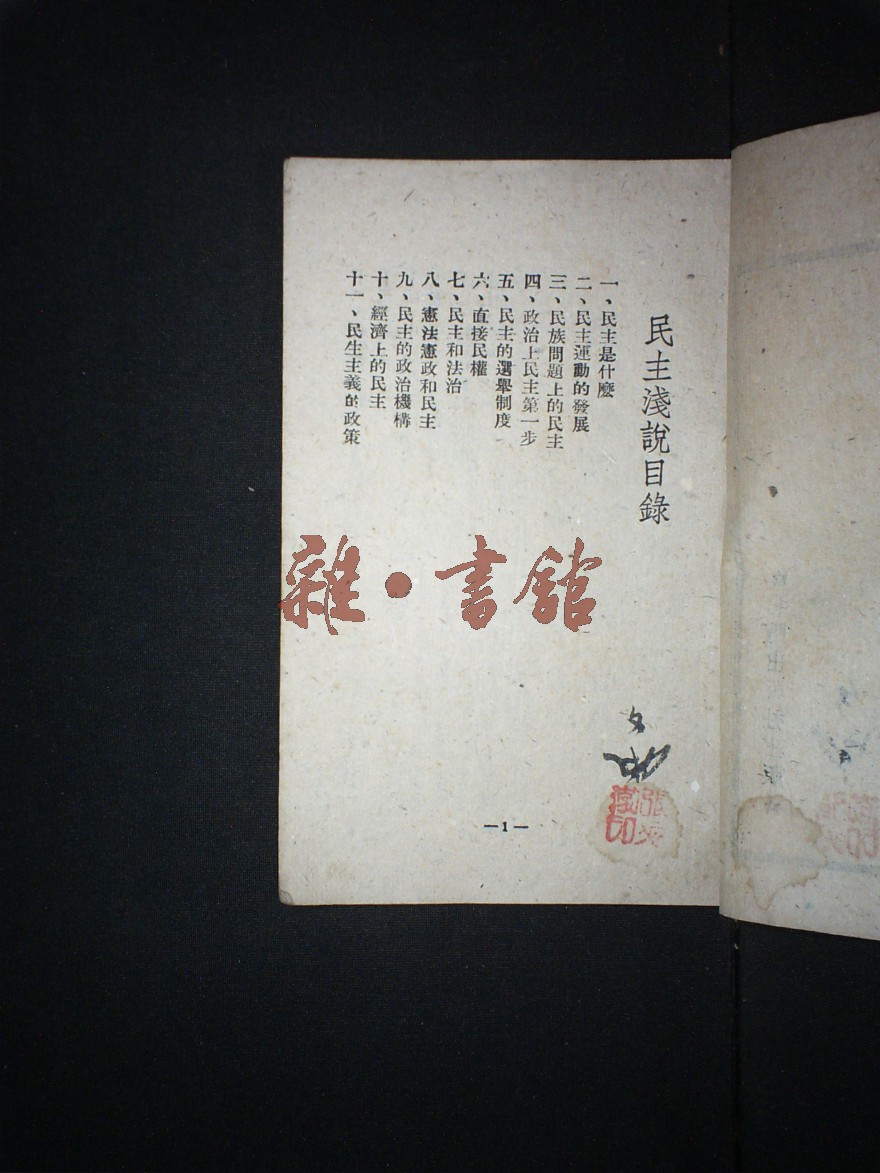 民主淺說目錄
一、民主是什麽
二、民主運動的發展
三、民族問題上的民主
四、政治上民主第一步
五、民主的選舉制度
六、直接民權
七、民主和法治
八、憲法憲政和民主
九、民主的政治機構
十、經濟上的民主
十一、民生主義的政策
雜·書館
—1—